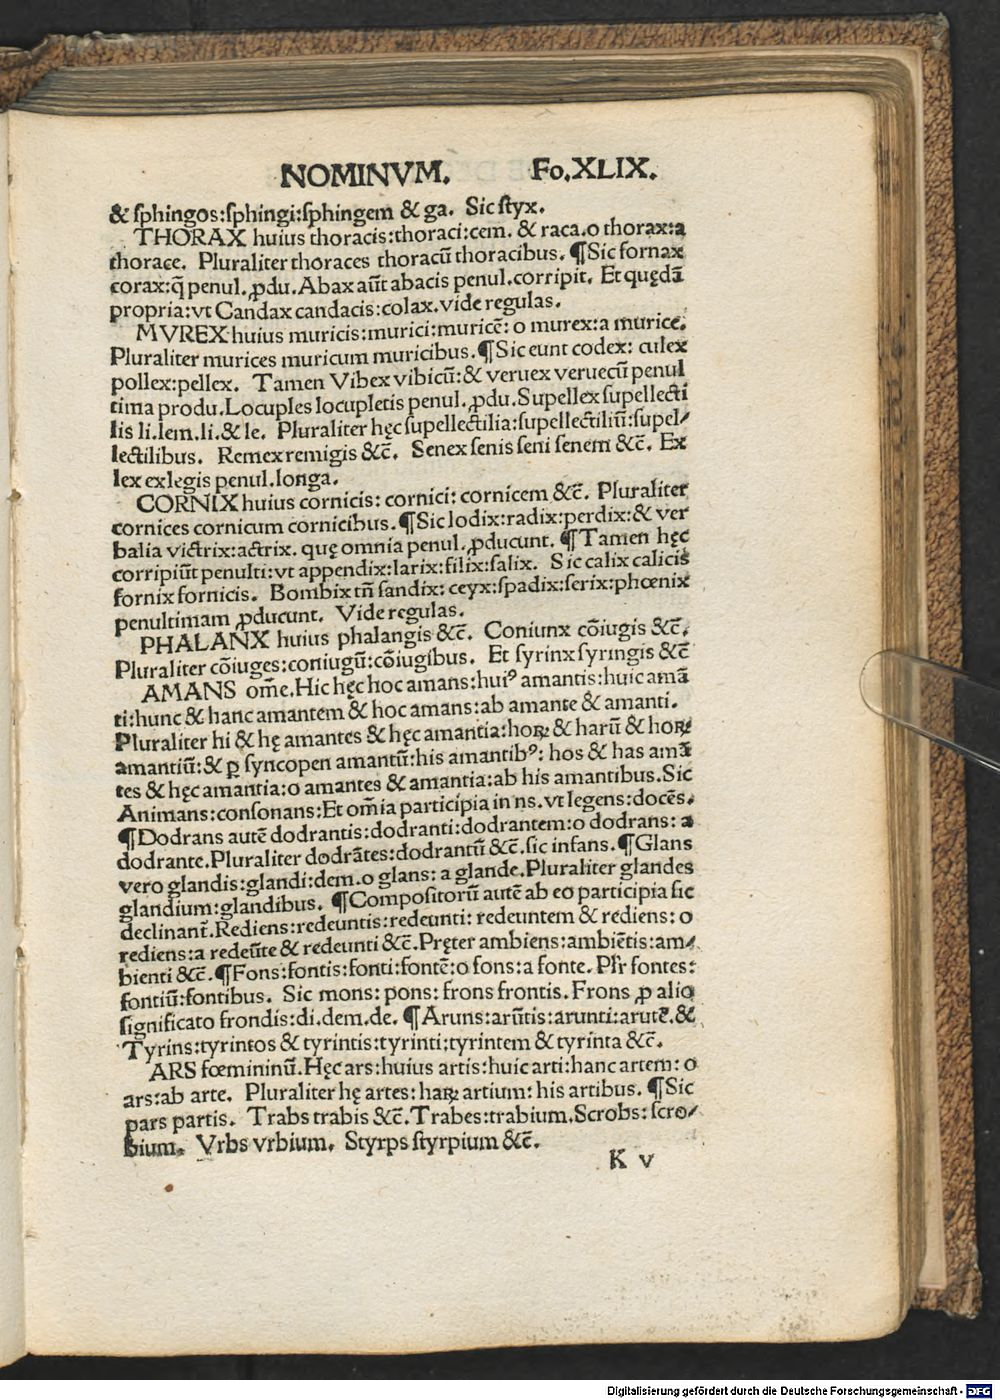 NOMINVM. Fo.XLIX.
& sphingos:sphingi:sphingem & ga. Sic styx.
THORAX huius thoracis:thoraci:cem. & raca.o thorax:a
thorace. Pluraliter thoraces thoracū thoracibus. ¶Sic fornax
corax:q̄ penul.ꝓdu.Abax aūt abacis penul.corripit. Et quędā
propria:vt Candax candacis:colax.vide regulas.
MVREX huius muricis:murici:muricē: o murex:a murice.
Pluraliter murices muricum muricibus.¶Sic eunt codex: culex
pollex:pellex. Tamen Vibex vibicū:& veruex veruecū penul
tima produ.Locuples locupletis penul.ꝓdu.Supellex supellecti
lis li.lem.li.&le. Pluraliter hęc supellectilia:supellectiliū:supel⸗
lectilibus. Remex remigis &c̄. Senex senis seni senem &c̄. Ex
lex exlegis penul.longa.
CORNIX huius cornicis: cornici: cornicem &c̄. Pluraliter
cornices cornicum cornicibus.¶Sic lodix:radix:perdix:& ver
balia victrix:actrix. quę omnia penul.ꝓducunt. ¶Tamen hęc
corripiūt penulti:vt appendix:larix:filix:salix. Sic calix calicis
fornix fornicis. Bombix tn̄ sandix: ceyx:spadix:serix:phœnix
penultimam ꝓducunt. Vide regulas.
PHALANX huius phalangis &c̄. Coniunx cōiugis &c̄.
Pluraliter cōiuges:coniugū:cōiugibus. Et syrinx syringis &c̄
AMANS om̄e.Hic hęc hoc amans:huiꝰ amantis:huic amā
ti:hunc & hanc amantem & hoc amans:ab amante & amanti.
Pluraliter hi & hę amantes & hęc amantia:hoꝝ & harū & hoꝝ
amantiū:& ꝑ syncopen amantū:his amantibꝰ: hos & has amā
tes & hęc amantia:o amantes & amantia:ab his amantibus.Sic
Animans:consonans:Et om̄ia participia in ns.vt legens:docēs.
¶Dodrans autē dodrantis:dodranti:dodrantem:o dodrans: a
dodrante.Pluraliter dodrātes:dodrantū &c̄.sic infans.¶Glans
vero glandis:glandi:dem.o glans: a glande.Pluraliter glandes
glandium:glandibus. ¶Compositorū autē ab eo participia sic
declinant̄.Rediens:redeuntis:redeunti: redeuntem & rediens: o
rediens:a redeūte & redeunti &c̄.Pręter ambiens:ambiētis:am⸗
bienti &c̄.¶Fons:fontis:fonti:fontē:o fons:a fonte.Pl̄r fontes:
fontiū:fontibus. Sic mons: pons: frons frontis.Frons ꝓ alio
significato frondis:di.dem.de. ¶Aruns:arūtis:arunti:arutē.&
Tyrins:tyrintos & tyrintis:tyrinti:tyrintem & tyrinta &c̄.
ARS fœmininū.Hęc ars:huius artis:huic arti:hanc artem: o
ars:ab arte. Pluraliter hę artes:haꝝ artium: his artibus. ¶Sic
pars partis. Trabs trabis &c̄.Trabes:trabium.Scrobs: scro⸗
bium. Vrbs vrbium. Styrps styrpium &c̄.
K v
Digitalisierung gefördert durch die Deutsche Forschungsgemeinschaft - DFG